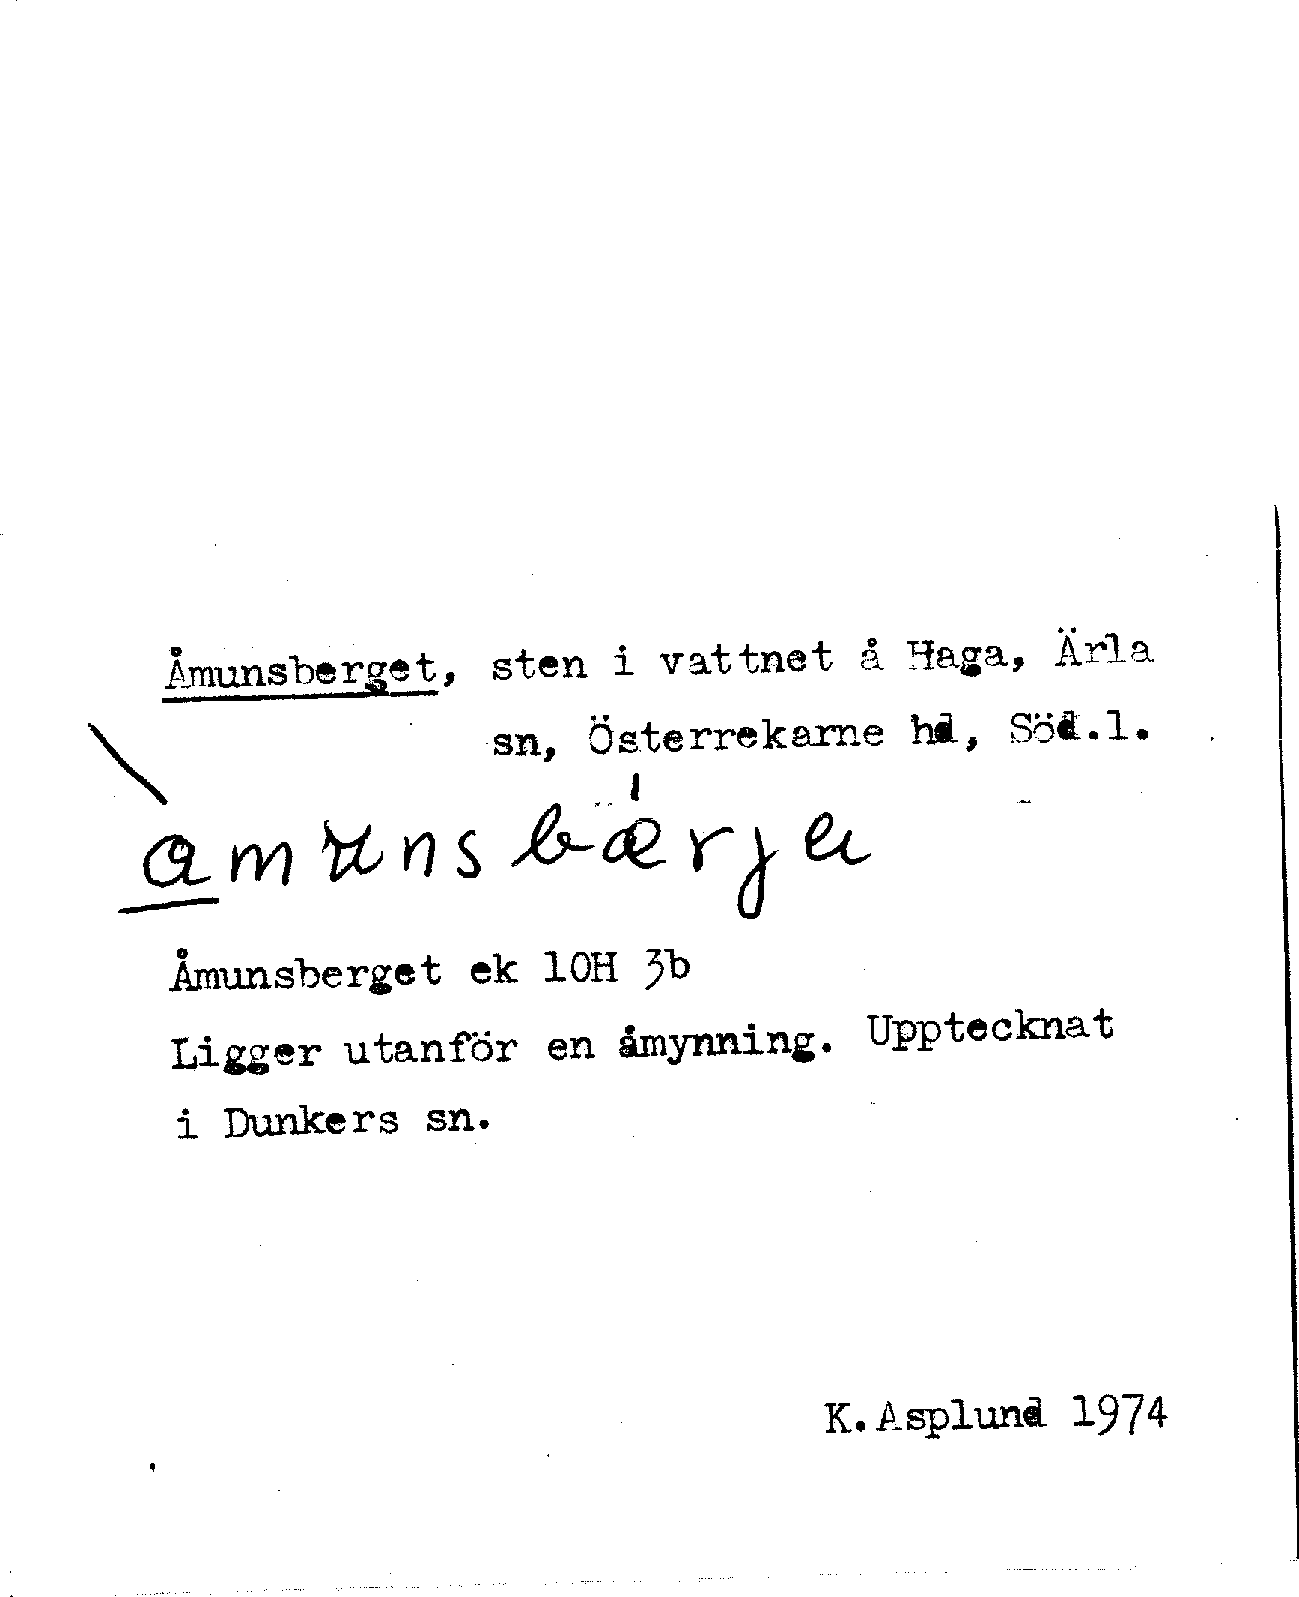 Åmunsberget, sten i vattnet å Haga, Ärla
sn, Österrekarne hd, Söd.l.
Åmunsberget ek 10H 3b
Ligger utanför en åmynning. Upptecknat
i Dunkers sn.
K.Asplund 1974